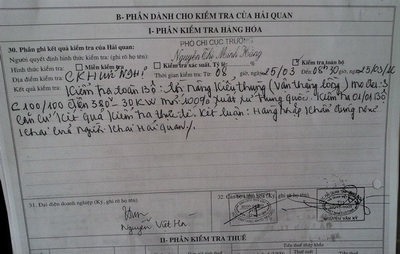 B- PHẦN DÀNH CHO KIỂM TRA CỦA HẢI QUAN
I- PHẦN KIỂM TRA HÀNG HÓA
30. Phần ghi kết quả kiểm tra của Hải quan:
PHÓ CHI CỤC TRƯỞNG
Người quyết định hình thức kiểm tra: ghi rõ họ tên
Nguyễn Thị Minh Hồng
Hình thức kiểm tra: Miễn kiểm tra Kiểm tra xác suất. Tỷ lệ: % Kiểm tra toàn bộ
Địa điểm kiểm tra: CK HỮU NGHỊ Thời gian kiểm tra: Từ 08 giờ, ngày 25/03 Đến 08h30 giờ, ngày 25/03/16
Kết quả kiểm tra: Kiểm tra toàn bộ: lô hàng
C100/100 điện 380V-30KW mới 100% xuất xứ Trung Quốc. Kiểm tra 01/01 Bộ
căn cứ kết quả kiểm tra thực tế. Kết luận: Hàng nhập khẩu đúng như
khai của người khai hải quan./.
31. Đại diện doanh nghiệp (Ký, ghi rõ họ tên)
32. Cán bộ ghi rõ họ tên)
Nguyễn Việt Hà
NGUYỄN VĂN KỲ
II- PHẦN KIỂM TRA THUẾ